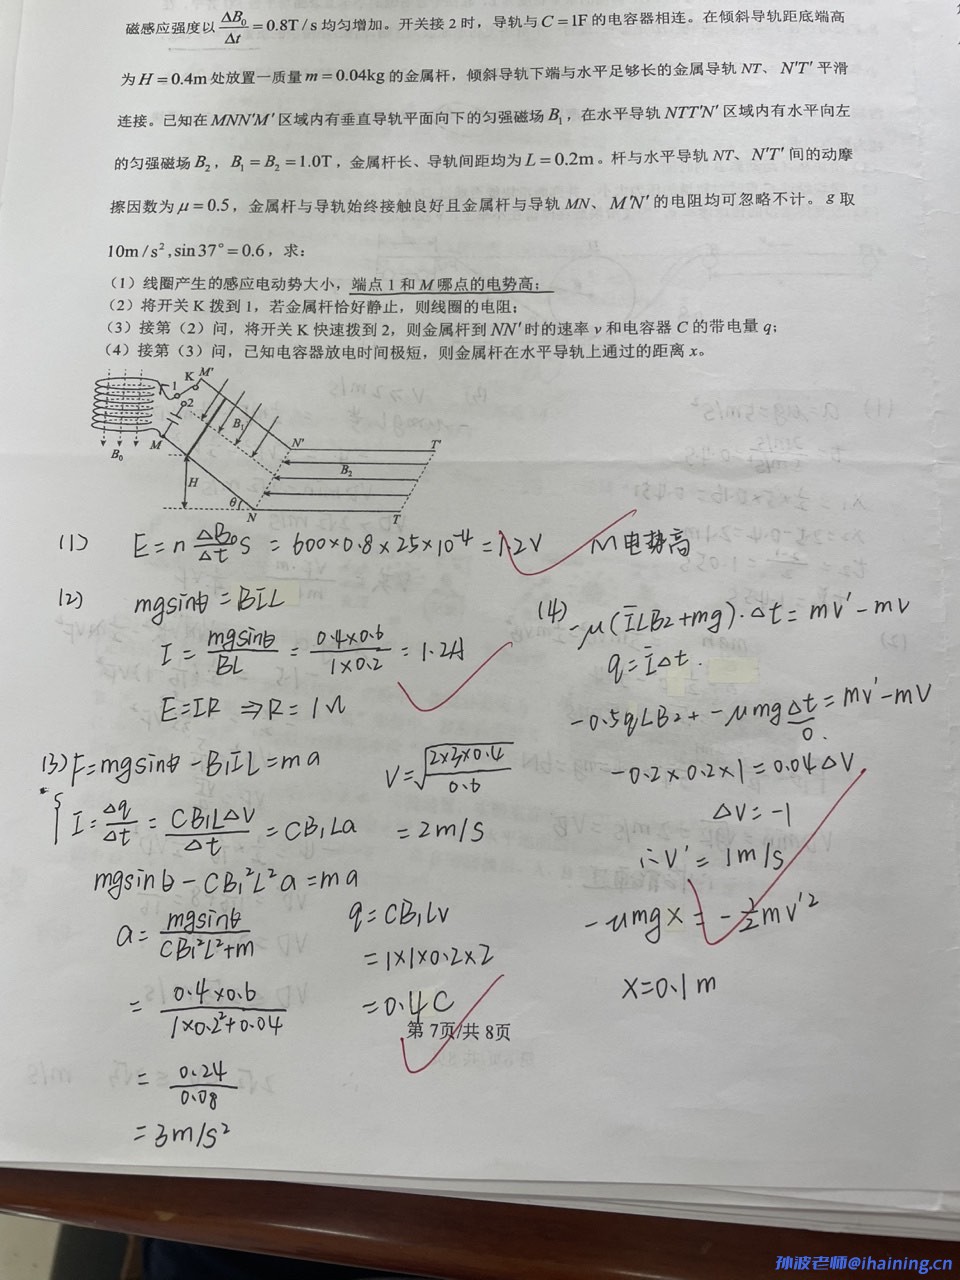 磁感应强度以 ΔB₀/Δt = 0.8T/s 均匀增加。开关接 2 时，导轨与 C = 1F 的电容器相连。在倾斜导轨距底端高
为 H = 0.4m 处放置一质量 m = 0.04kg 的金属杆，倾斜导轨下端与水平足够长的金属导轨 NT、N'T' 平滑
连接。已知在 MNN'M' 区域内有垂直导轨平面向下的匀强磁场 B₁，在水平导轨 NTT'N' 区域内有水平向左
的匀强磁场 B₂，B₁ = B₂ = 1.0T，金属杆长、导轨间距均为 L = 0.2m。杆与水平导轨 NT、N'T' 间的动摩
擦因数为 μ = 0.5，金属杆与导轨始终接触良好且金属杆与导轨 MN、M'N' 的电阻均可忽略不计。g 取
10m/s², sin37° = 0.6，求：
（1）线圈产生的感应电动势大小，端点 1 和 M 哪点的电势高；
（2）将开关 K 拨到 1，若金属杆恰好静止，则线圈的电阻；
（3）接第（2）问，将开关 K 快速拨到 2，则金属杆到 NN' 时的速率 v 和电容器 C 的带电量 q；
（4）接第（3）问，已知电容器放电时间极短，则金属杆在水平导轨上通过的距离 x。
K M'
1
2
B₁
M
B₀
N'
T'
B₂
H
θ
N
T
(1) E = n ΔB₀/Δt S = 600×0.8×25×10⁻⁴ = 1.2V M电势高
(2) mgsinθ = BIL
I = mgsinθ/BL = 0.4×0.6/1×0.2 = 1.2A
E=IR ⇒R=1Ω
(3) F=mgsinθ - B₁IL = ma
I = Δq/Δt = CB₁LΔV/Δt = CB₁La
mgsinθ - CB₁²L²a = ma
a = mgsinθ/CB₁²L²+m
= 0.4×0.6/1×0.2²+0.04
= 0.24/0.08
= 3m/s²
V = √(2×3×0.4/0.6)
= 2m/s
q = CB₁LV
= 1×1×0.2×2
= 0.4C
(4) -μ(ĪLB₂+mg)·Δt = mv' - mv
q = ĪΔt.
-0.5qLB₂ + -μmgΔt = mv' - mv
0.
-0.2×0.2×1 = 0.04ΔV
ΔV = -1
∴V' = 1m/s
-μmgx = -½mv'²
x=0.1m
第 7页/共 8页
孙波老师@ihaining.cn